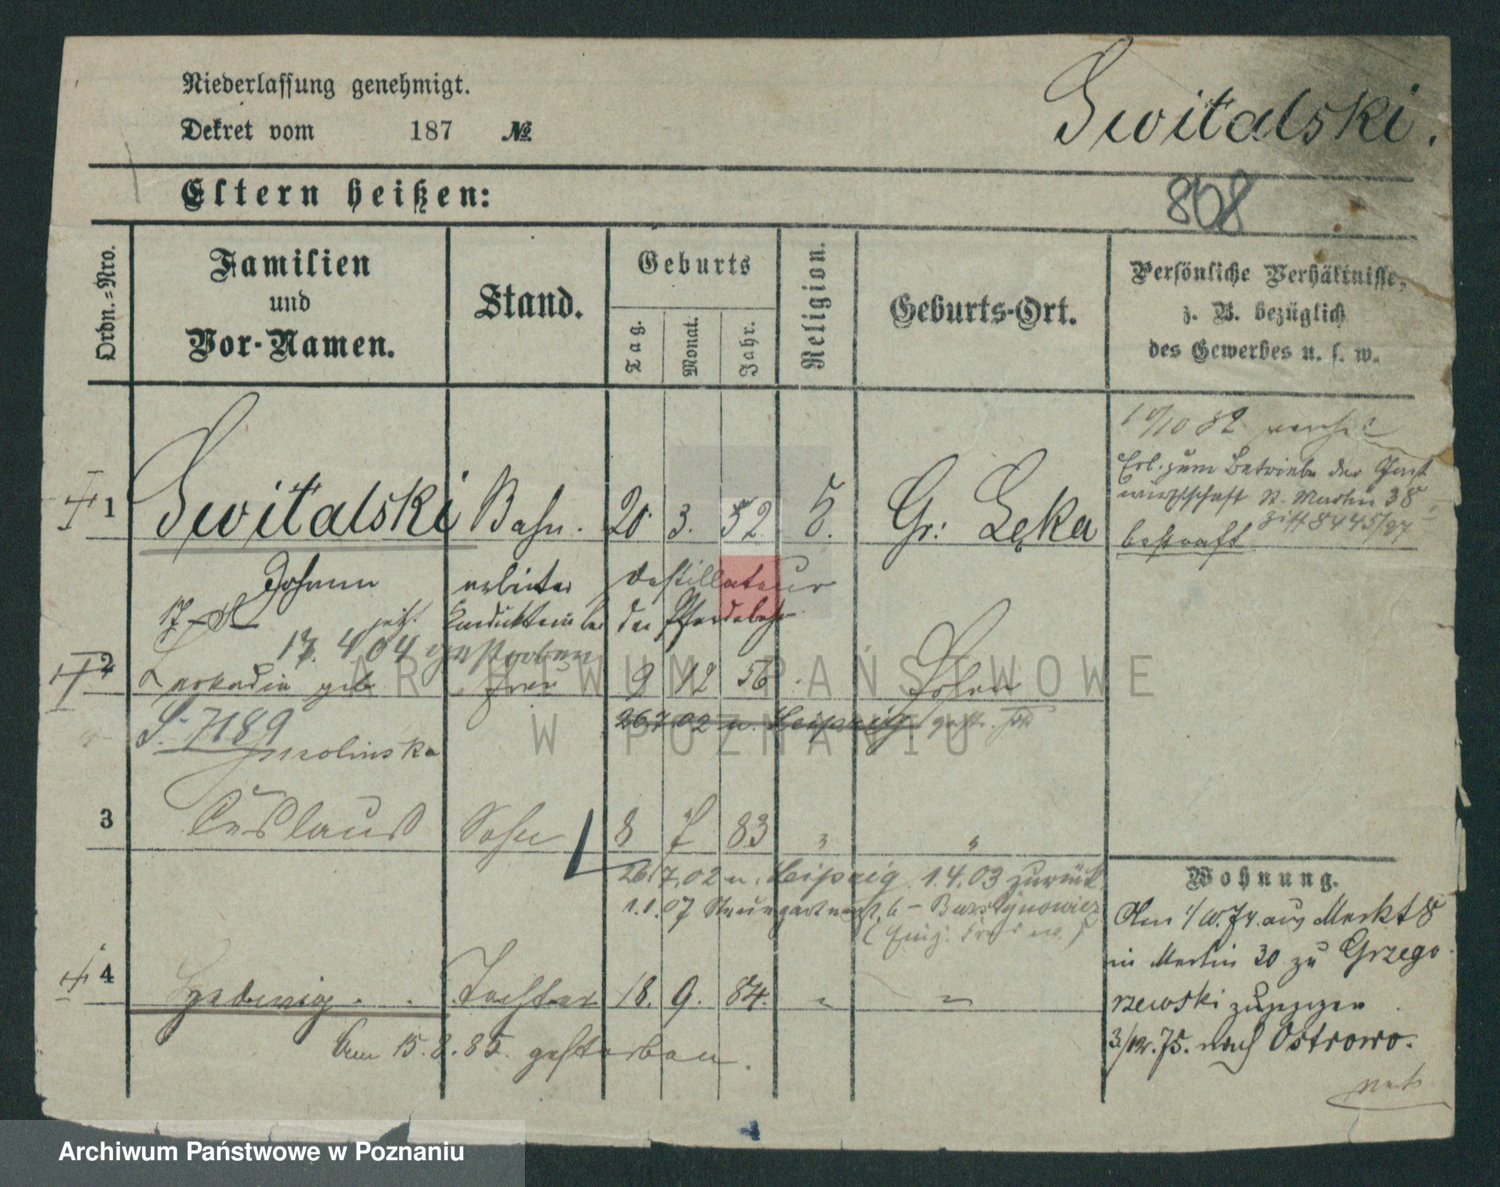 Niederlassung genehmigt.
Dekret vom 187 №
Switalski.
Eltern heißen:
868
Ordn.=Nro.
Familien
und
Vor-Namen.
Stand.
Geburts
Tag.
Monat.
Jahr.
Religion.
Geburts-Ort.
Persönliche Verhältnisse,
z. B. bezüglich
des Gewerbes u. s. w.
10/10 82
zum Betriebe der
St. Martin 38
8445/87
bestraft
1 Switalski Bahn. 20 3. 52 Gr: Lęka
Johann arbeiter destillateur
jetzt der Pferdebahn
17. 4 04 gestorben
2 Leokadia geb Frau 9 12 56 Posen
26.7.02 n. Leipzig
S. 7189
Smolinska
3 Ceslaus Sohn 8 7 83 " "
26.7.02 n. Leipzig 1.4.03 zurück
1.1.07 b - Bursztynowicz
4 Hedwig Tochter 18. 9. 84. " "
Am 15.8.85. gestorben.
Wohnung.
Am 1/10.74. aus Markt 8
in Martin 30 zu Grzego
rzewski zugezogen
3/12.75. nach Ostrowo.
ARCHIWUM PAŃSTWOWE
W POZNANIU
Archiwum Państwowe w Poznaniu